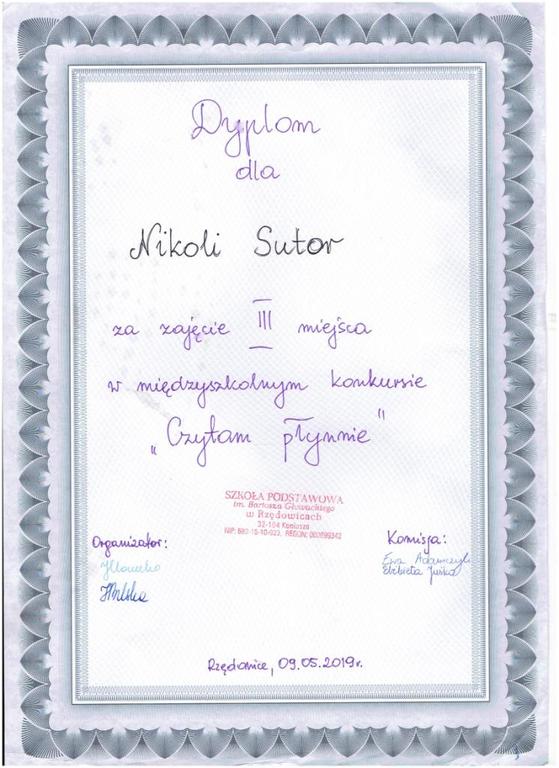 Dyplom
dla
Nikoli Sutor
za zajęcie III miejsca
w międzyszkolnym konkursie
„Czytam płynnie”
SZKOŁA PODSTAWOWA
im. Bartosza Głowackiego
w Rzędowicach
32-104 Koniusza
Organizator:
Komisja:
Ewa Adamczyk
Elżbieta
Rzędowice, 09.05.2019r.